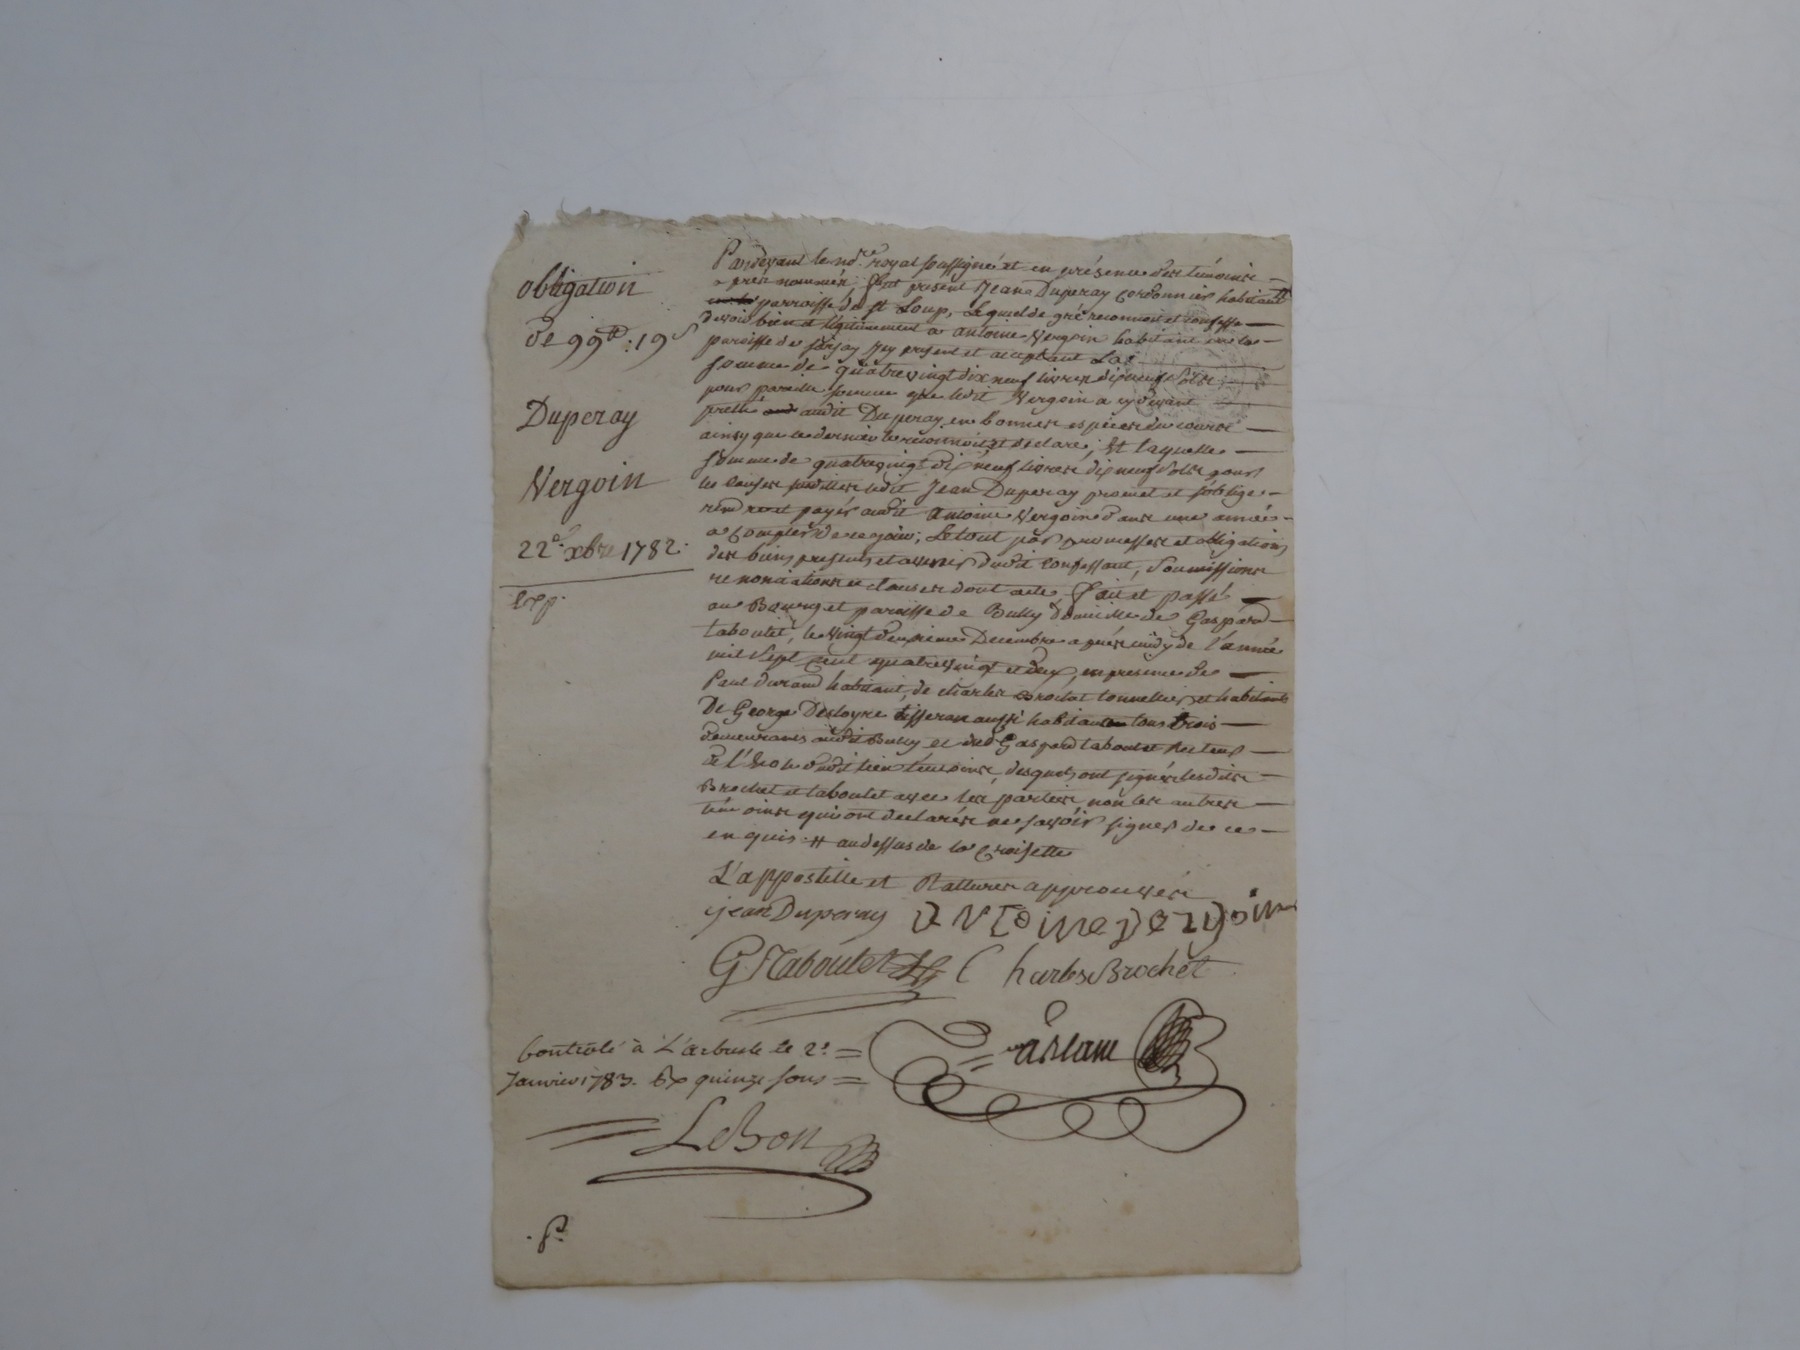 obligation
de 99ᵗᵗ: 19ˢ
Duperay
Vergoin
22ᵉ. xbre 1782.
Exp.
Pardevant le noʳᵉ royal soussigné et en présence des témoins
après nommés, fut present Jean Duperay cordonnier habitant #
parroisse de st Loup, Lequel de gré reconnoit et confesse
devoir bien et légitimement a antoine Vergoin habitant en la
paroisse de present et acceptant La
somme de quatrevingt dix neuf livres dix neuf sols
pour pareille somme que ledit Vergoin a cydevant
presté audit Duperay en bonnes espèces du cours
ainsy que ce dernier le reconnoit et declare; Et laquelle
somme de quatrevingt dix neuf livres dix neuf sols pour
les causes ledit Jean Duperay promet et s'oblige
rendre et payer audit antoine Vergoin dans une année
a compter de ce jour; Le tout par promesses et obligations
des biens presents et avenir dudit confessant, soumissions
renonciations et clauses dont acte, fait et passé
au Bourg et paroisse de Bully domicile de Gaspard
taboulet, le vingt deuxieme Decembre après midy de l'année
mil sept cent quatrevingt et deux, en presence de
Paul durand habitant, de charles Brochet tonnellier et habitant
De George Desloyre tisseran aussi habitant tous trois
demeurants audit Bully et dud Gaspard taboulet Recteur
de l'Ecole dudit lieu témoins, desquels ont signés lesdits
Brochet et taboulet avec les parties, non les autres
témoins qui ont declarés ne savoir signer de ce
enquis # audessus de la Croisette
L'appostille et Ratures approuvés
jean Duperay antoine vergoin
G. Taboulet Charles Brochet
Controlé à L'arbresle le 2ᵉ
Janvier 1783. Rx quinze sous
LeBon